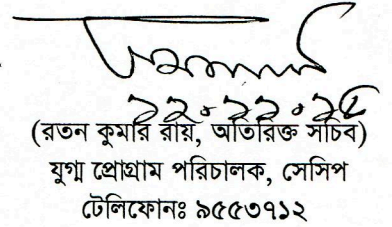 ১২.১১.১৫
(রতন কুমার রায়, অতিরিক্ত সচিব)
যুগ্ম প্রোগ্রাম পরিচালক, সেসিপ
টেলিফোনঃ ৯৫৫৩৭১২